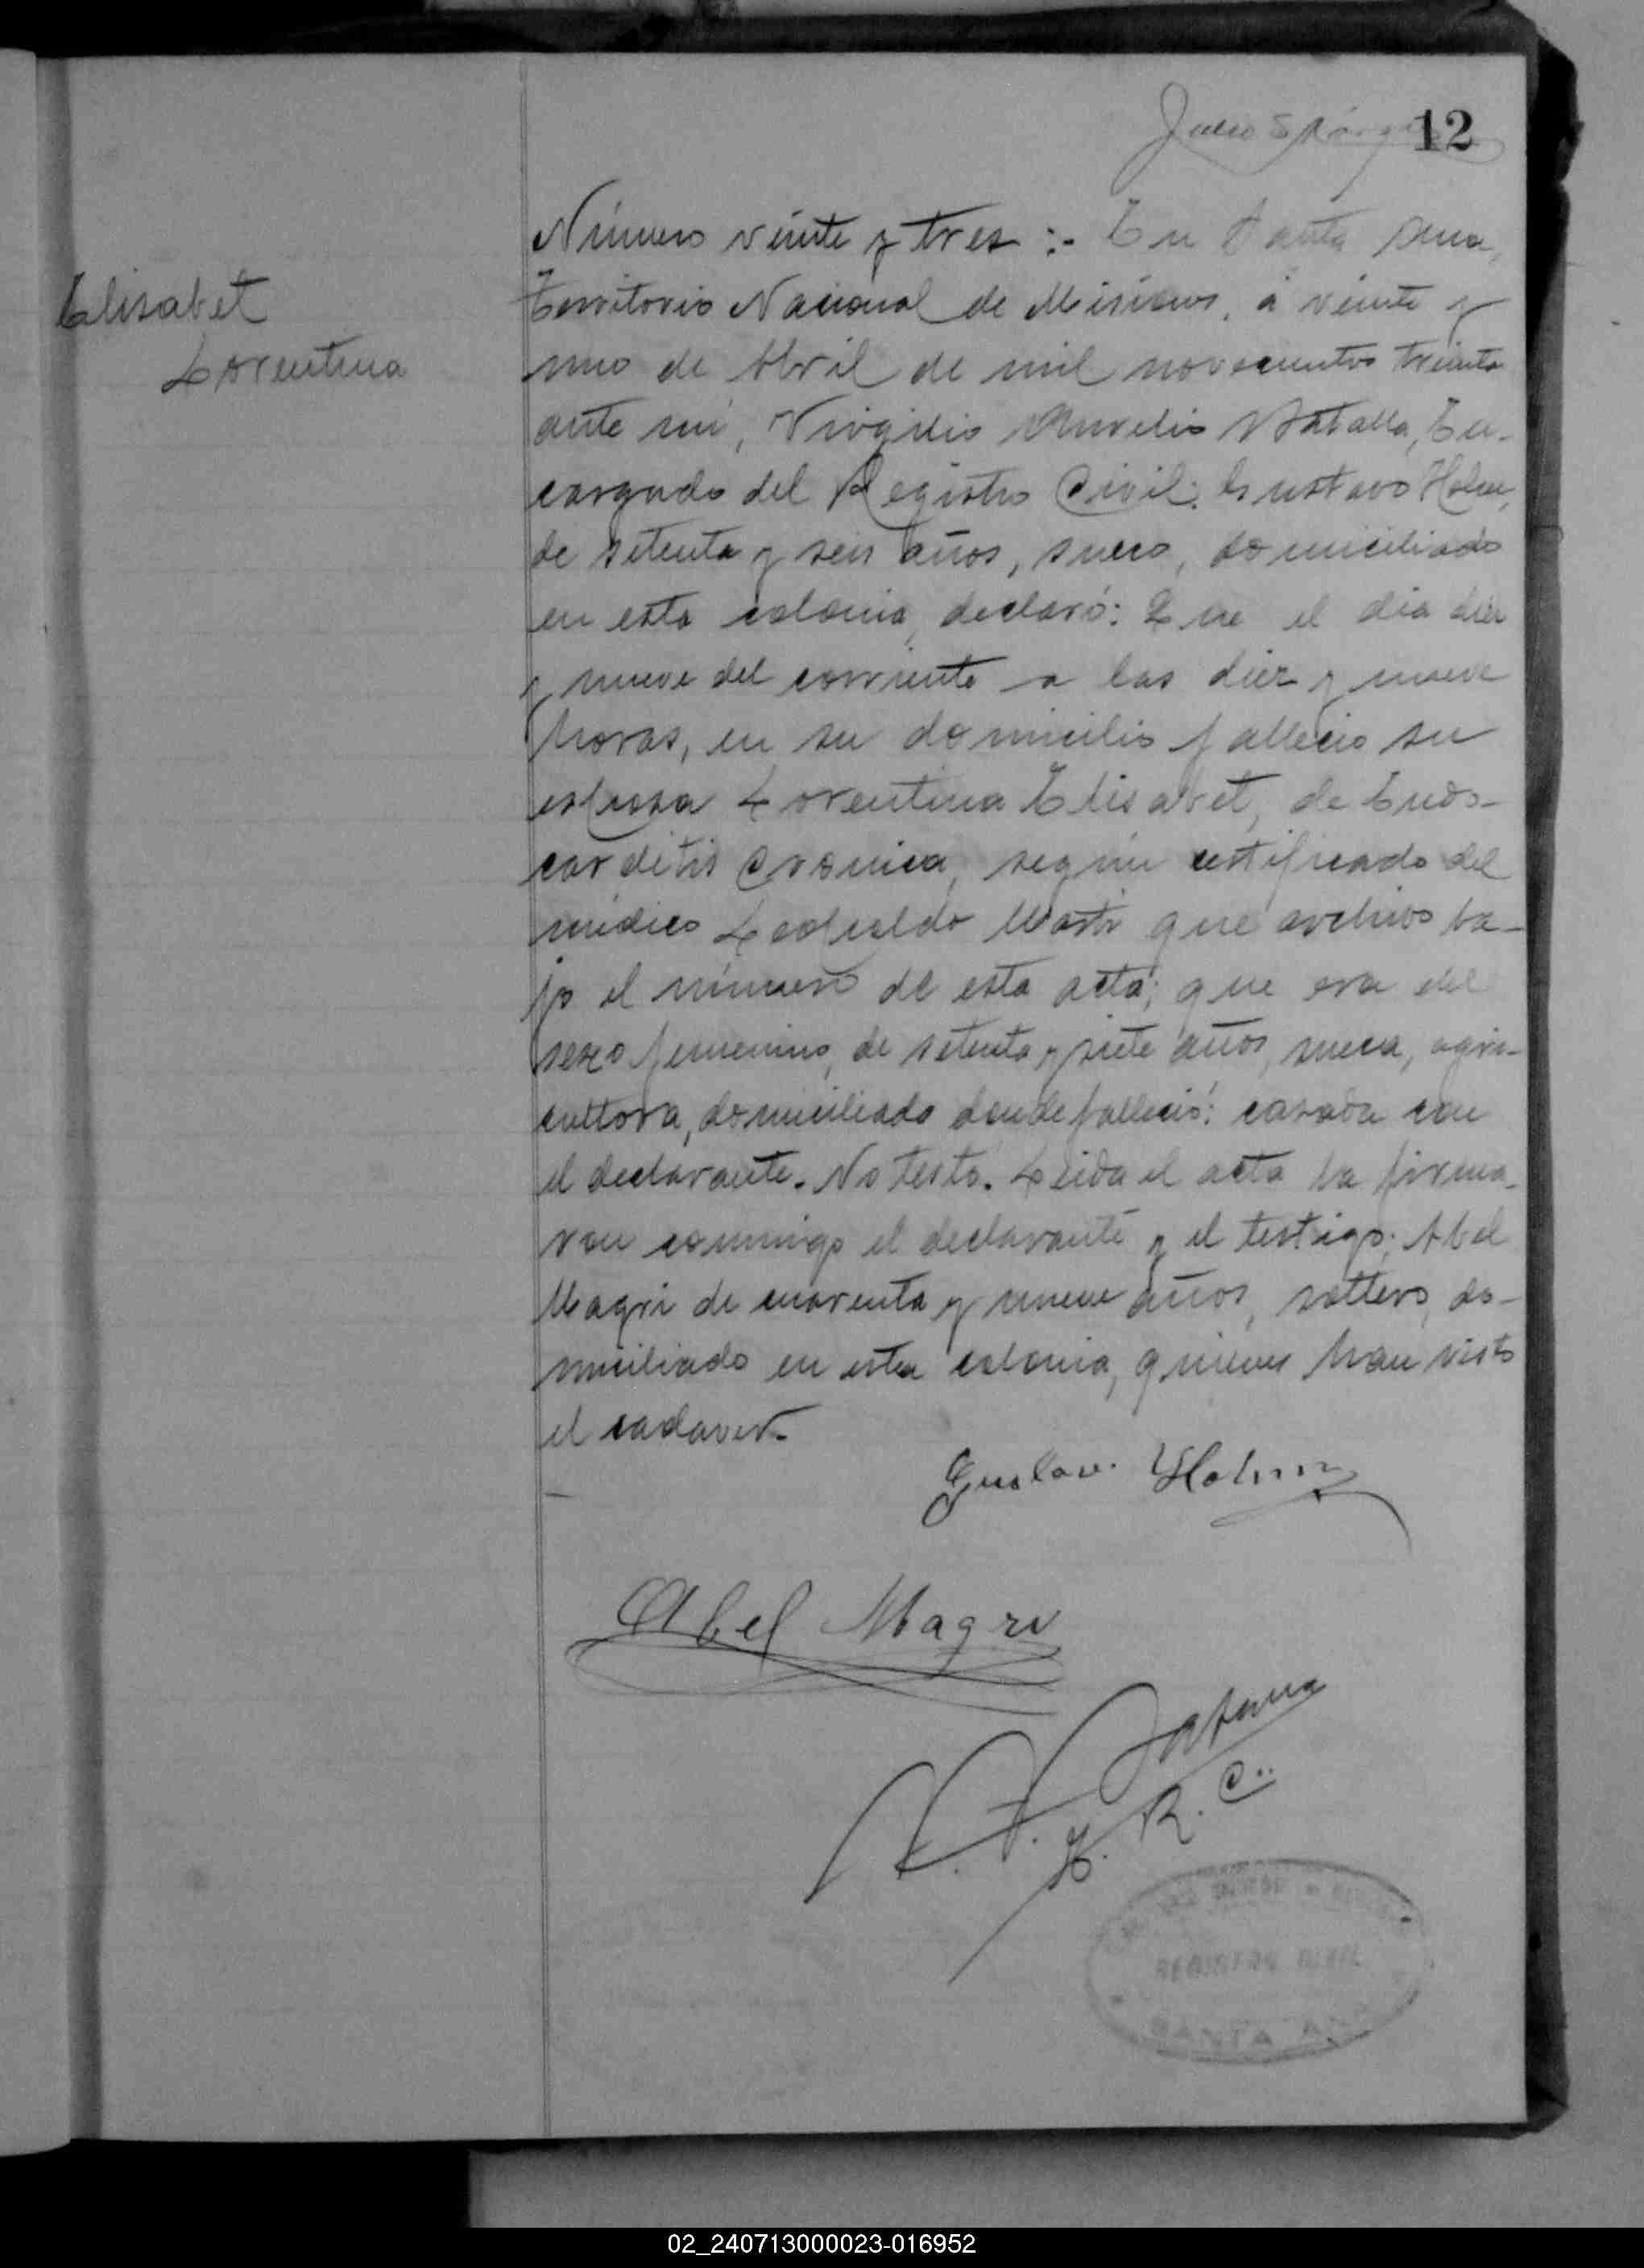 12
Elisabet
Lorentina
Número veinte y tres :- En Santa Ana,
Territorio Nacional de Misiones, á veinte y
uno de Abril de mil novecientos treinta
ante mi, Virgilio Aurelio Batalla, En-
cargado del Registro Civil: Gustavo Holm,
de setenta y seis años, sueco, domiciliado
en esta colonia, declaró: Que el dia diez
y nueve del corriente a las diez y nueve
horas, en su domicilio fallecio su
esposa Lorentina Elisabet, de Endo-
carditis Cronica, según certificado del
médico Leopoldo que archivo ba-
jo el número de esta acta; que era del
sexo femenino, de setenta y siete años, sueca, agri-
cultora, domiciliada donde falleció: casada con
el declarante. No testó. Leida el acta la firma-
ron conmigo el declarante y el testigo: Abel
Magri de cuarenta y nueve años, soltero, do-
miciliado en esta colonia, quienes han visto
el cadaver.
Gustav. Holm
Abel Magri
E. R. C..
REGISTRO CIVIL
SANTA ANA
02_240713000023-016952